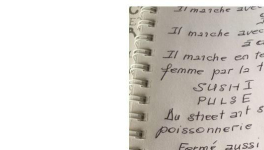 Il marche avec
Il marche avec
Il marche en te
femme par la t
SUSHI
PULSE
Du street art s
poissonnerie
Fermé aussi